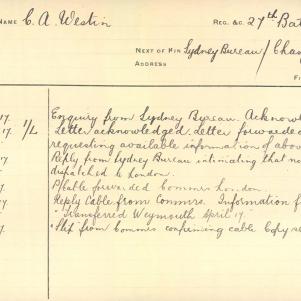 NAME C. A. Westin REG. &C. 27th Bat
NEXT OF KIN Sydney Bureau /
ADDRESS
17. Enquiry from Sydney Bureau. Acknowl
17. 1/L Letter acknowledged. Letter forwarded
requesting available information of above
17 Reply from Sydney Bureau intimating that no
dispatched to London.
17 P/cable forwarded Commrs London.
17 Reply Cable from Commrs. Information f
"Transferred Weymouth April 17."
17 Slip from Commrs. confirming cable Copy se